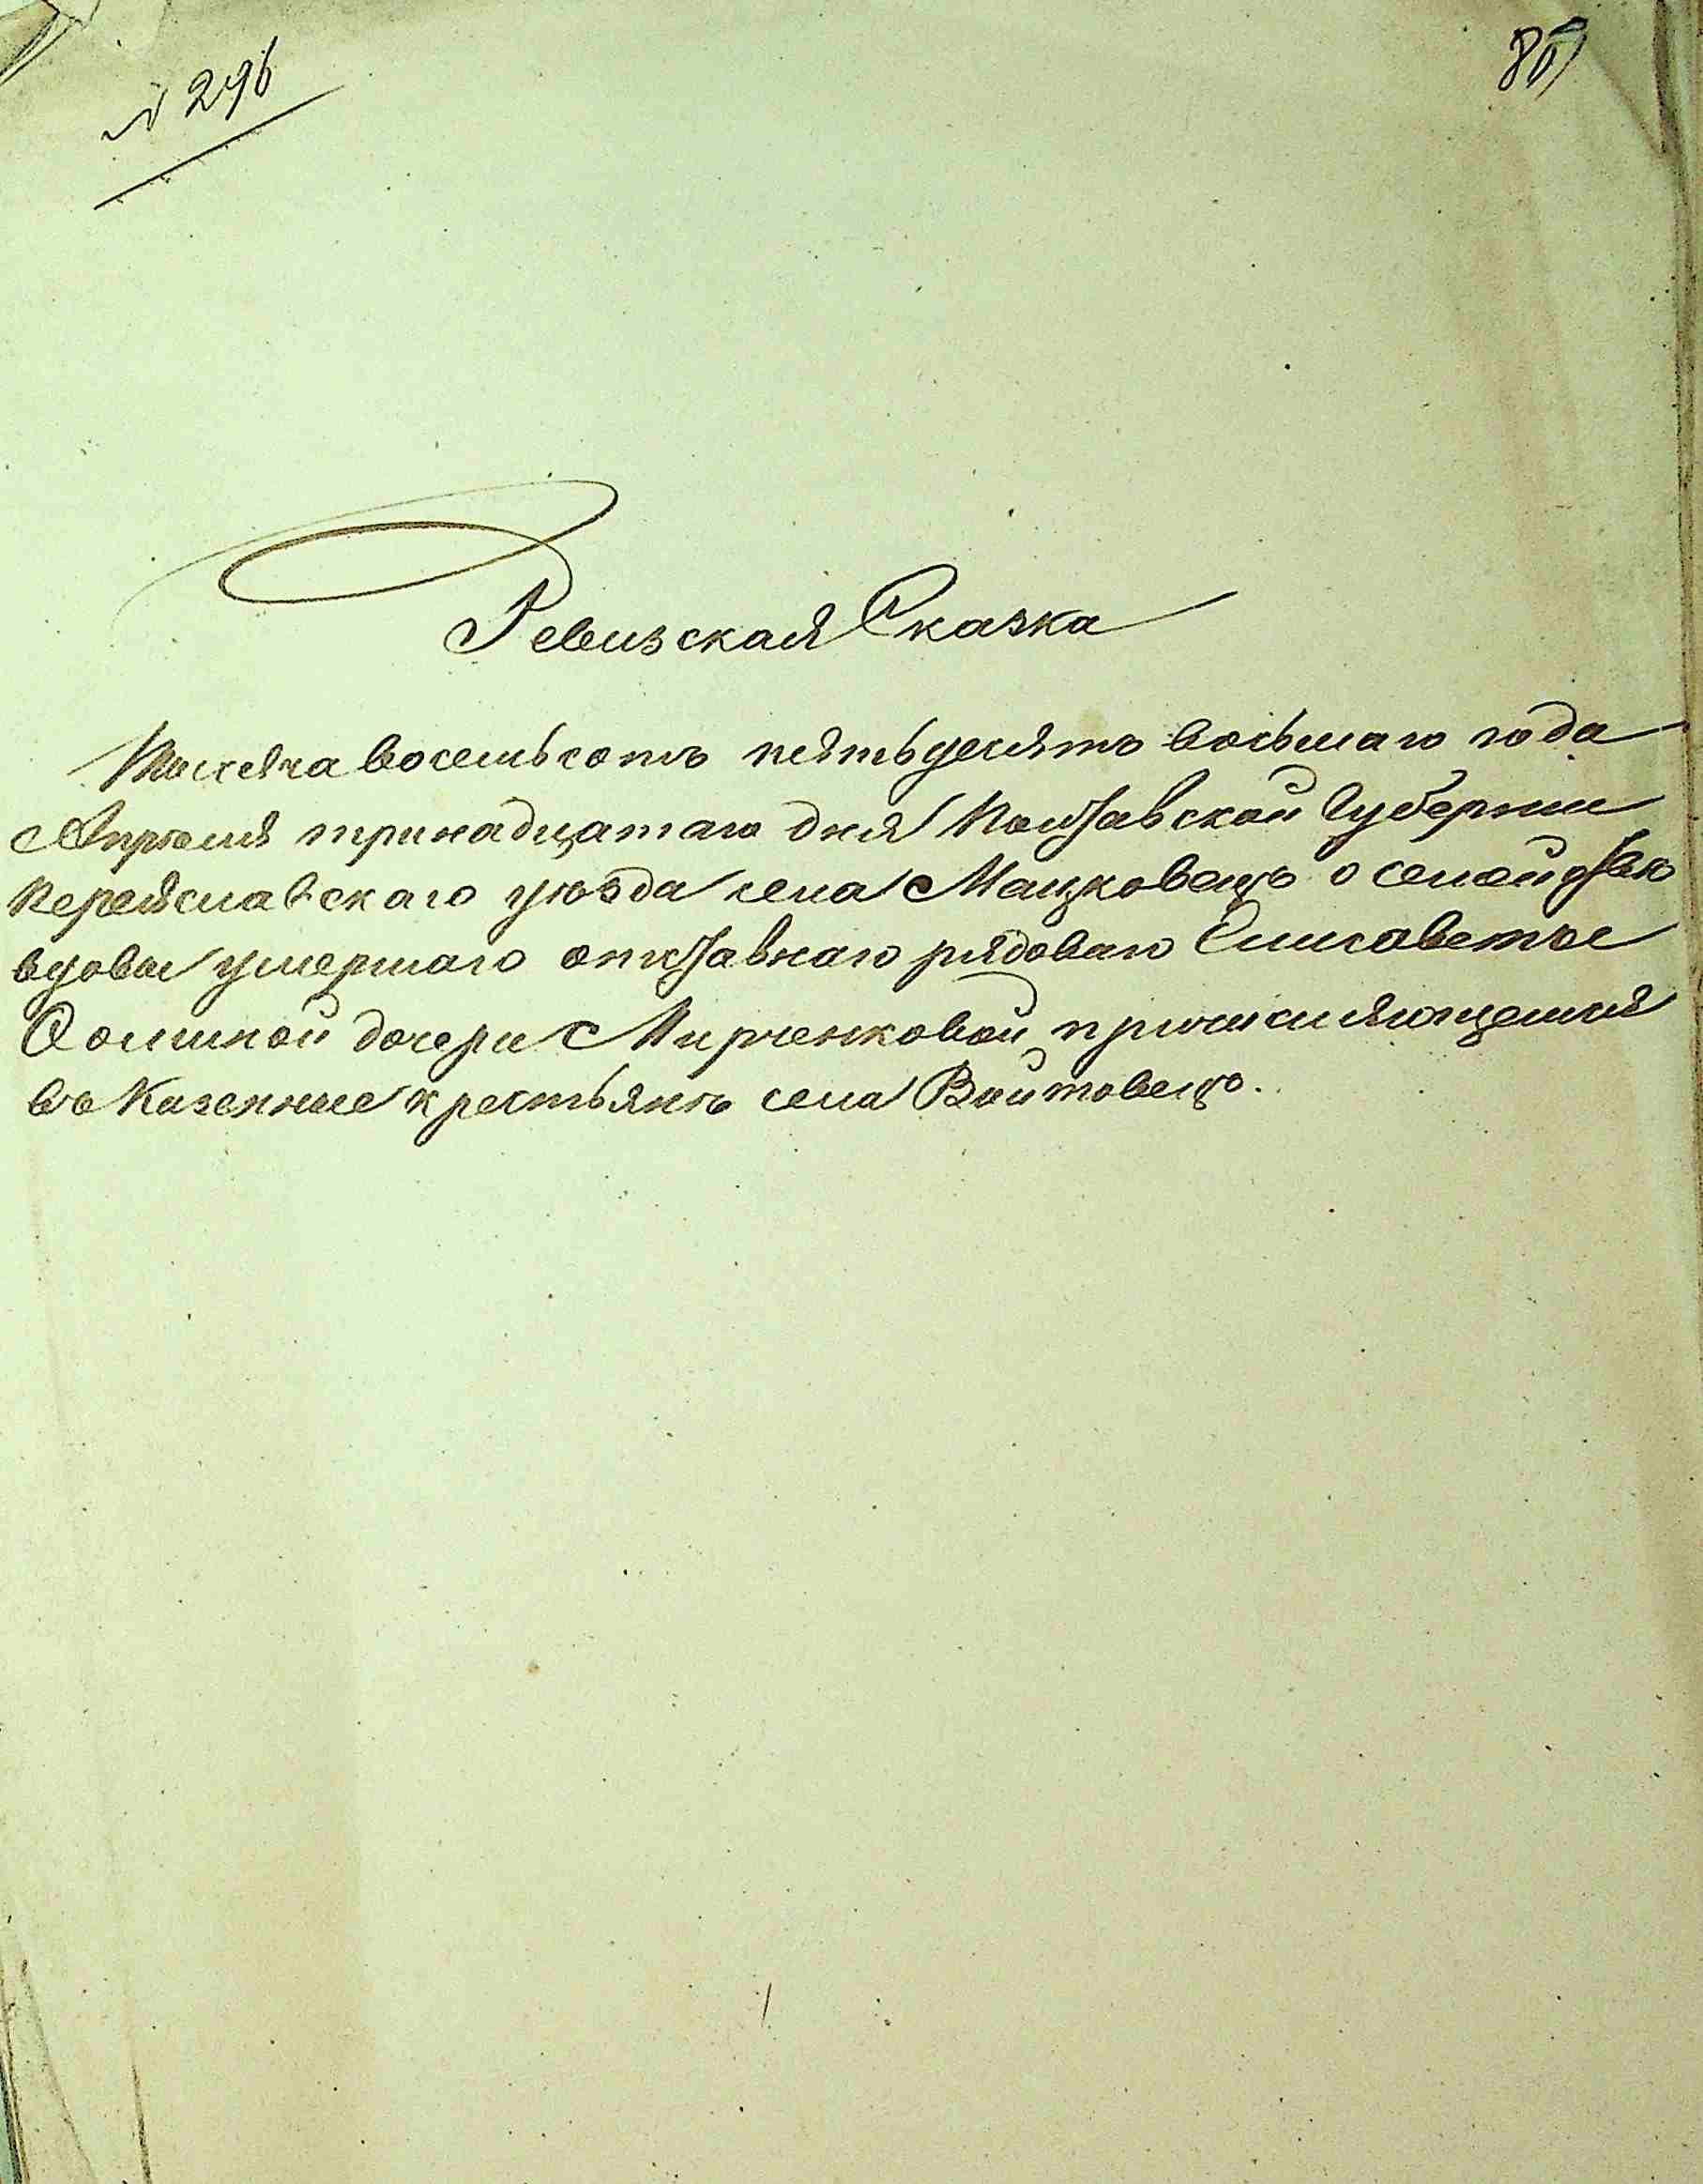 № 296
Ревизская Сказка
Тысяча восемьсотъ пятьдесятъ восьмаго года
Апрѣля тринадцатаго дня Полтавской Губернии
Переяславскаго уѣзда села Мацковецъ о семействѣ
вдовы умершаго отставнаго рядоваго Елисаветы
Фоминой дочери Мирченковой, причисляющейся
въ Казенные крестьянъ села Войтовецъ.